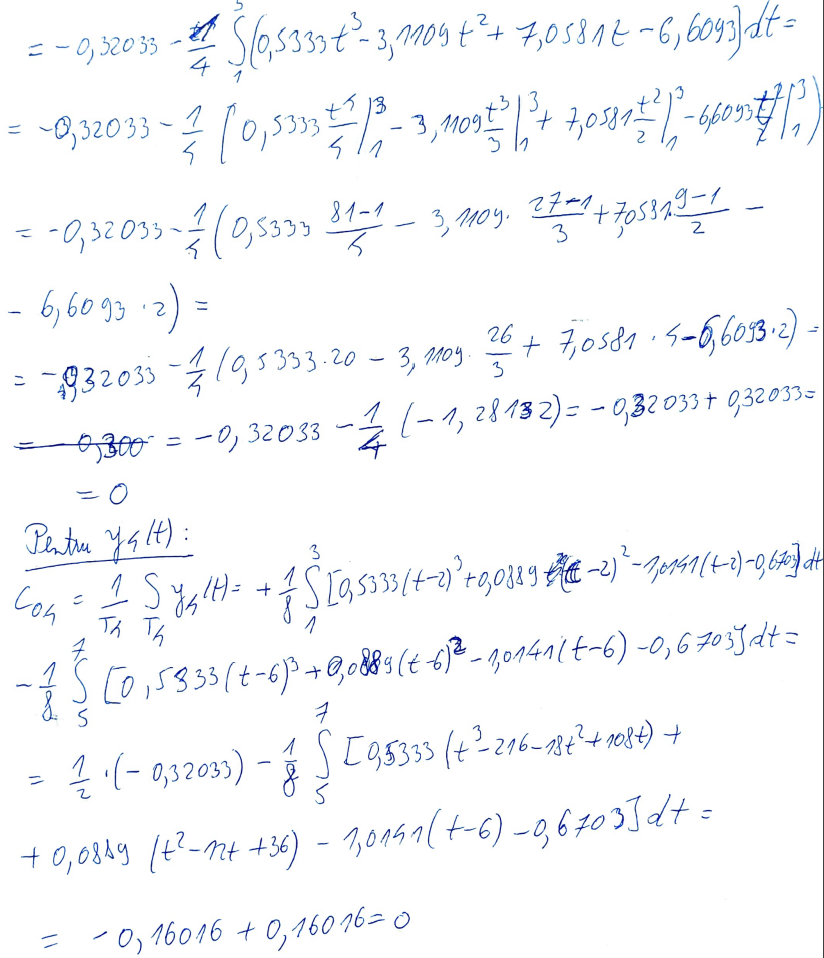 = -0,32033 - 1/4 ∫₁³ (0,5333t³ - 3,1109t² + 7,0581t - 6,6093]dt =
= -0,32033 - 1/4 [0,5333 t⁴/4 |₁³ - 3,1109 t³/3 |₁³ + 7,0581 t²/2 |₁³ - 6,6093 t |₁³)
= -0,32033 - 1/4 (0,5333 81-1/4 - 3,1109 · 27-1/3 + 7,0581 · 9-1/2 -
- 6,6093 · 2) =
= -0,32033 - 1/4 (0,5333·20 - 3,1109 · 26/3 + 7,0581 · 4 - 6,6093·2) =
= -0,32033 - 1/4 (-1,28132) = -0,32033 + 0,32033 =
= 0
Pentru y₄(t):
C₀₄ = 1/T₄ ∫_T₄ y₄(t) = + 1/8 ∫₁³ [0,5333(t-2)³ + 0,0889(t-2)² - 1,0141(t-2) - 0,6703]dt
- 1/8 ∫₅⁷ [0,5333(t-6)³ + 0,0889(t-6)² - 1,0141(t-6) - 0,6703]dt =
= 1/2 · (-0,32033) - 1/8 ∫₅⁷ [0,5333 (t³ - 216 - 18t² + 108t) +
+ 0,0889 (t² - 12t + 36) - 1,0141(t-6) - 0,6703]dt =
= -0,16016 + 0,16016 = 0